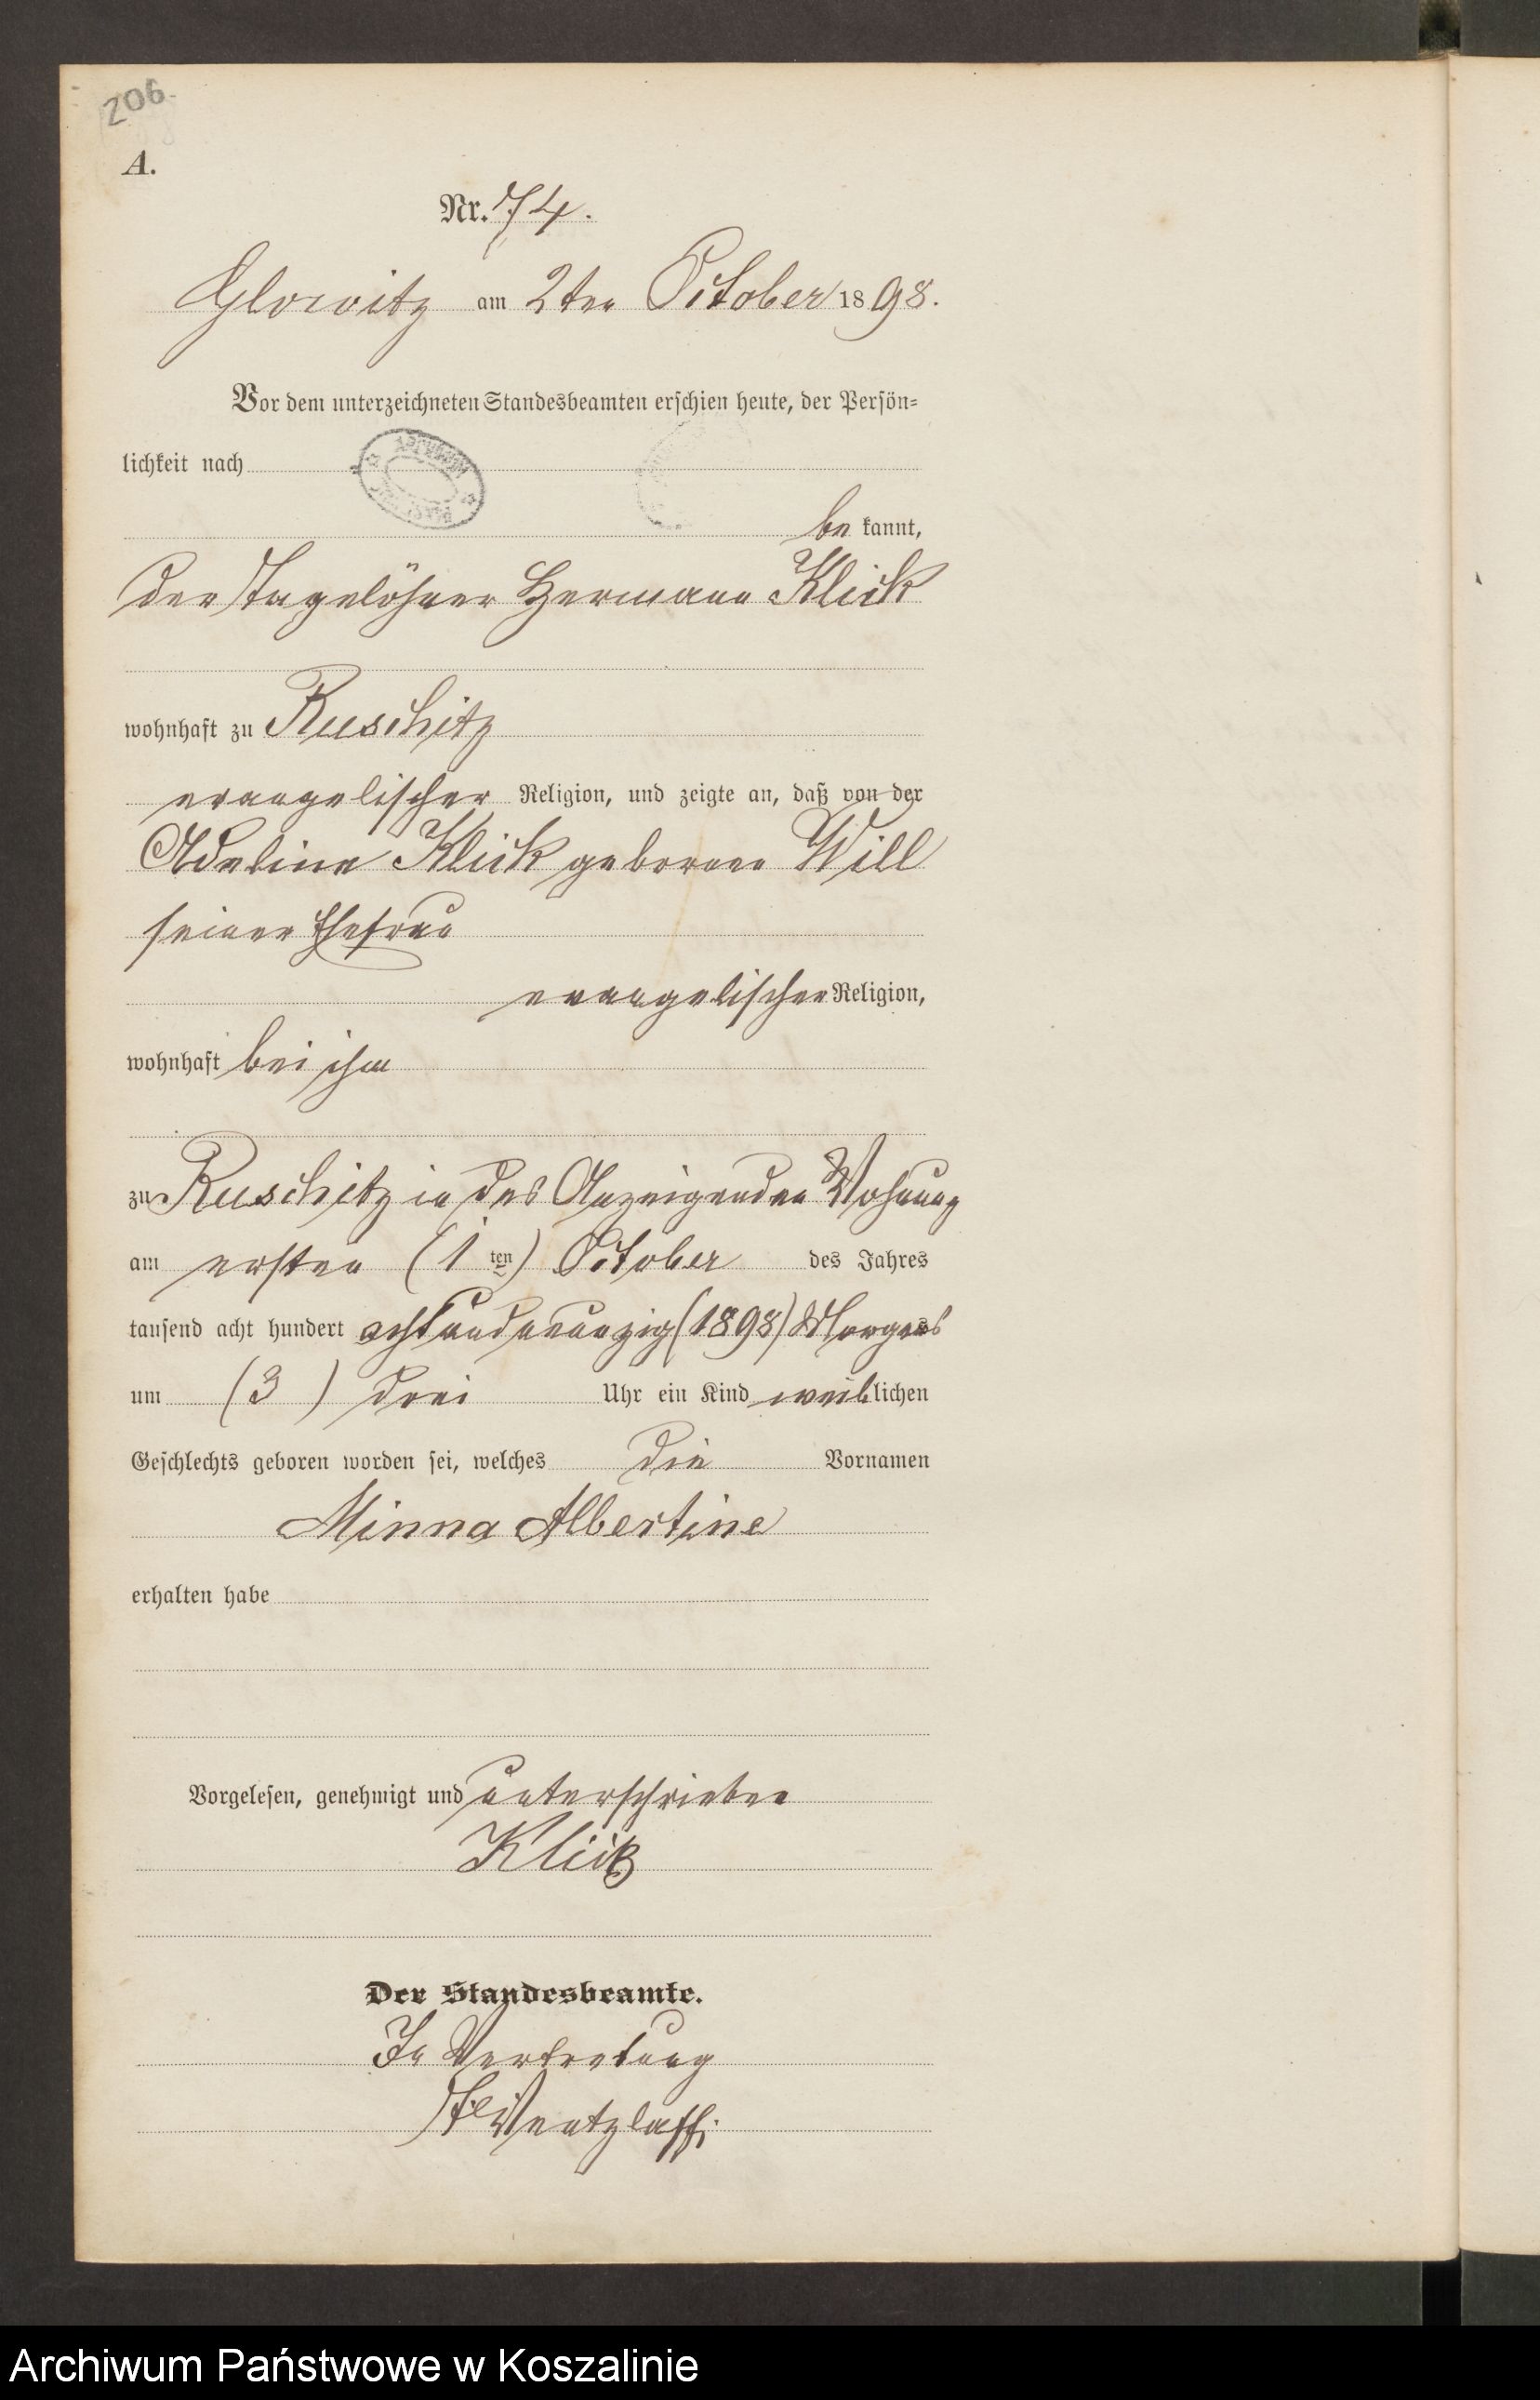 206.
A.
Nr. 74.
Glowitz am 2ten October 1898.
Vor dem unterzeichneten Standesbeamten erschien heute, der Persön=
lichkeit nach
be kannt,
der Tagelöhner Hermann Klick
wohnhaft zu Ruschitz
evangelischer Religion, und zeigte an, daß von der
Adeline Klick geborene Will
seiner Ehefrau
evangelischer Religion,
wohnhaft bei ihm
zu Ruschitz in des Anzeigenden Wohnung
am ersten (1 ten) October des Jahres
tausend acht hundert achtundneunzig (1898) Morgens
um (3) drei Uhr ein Kind weiblichen
Geschlechts geboren worden sei, welches die Vornamen
Minna Albertine
erhalten habe
Vorgelesen, genehmigt und unterschrieben
Klick
Der Standesbeamte.
In Vertretung
Wentzlaff.
Archiwum Państwowe w Koszalinie